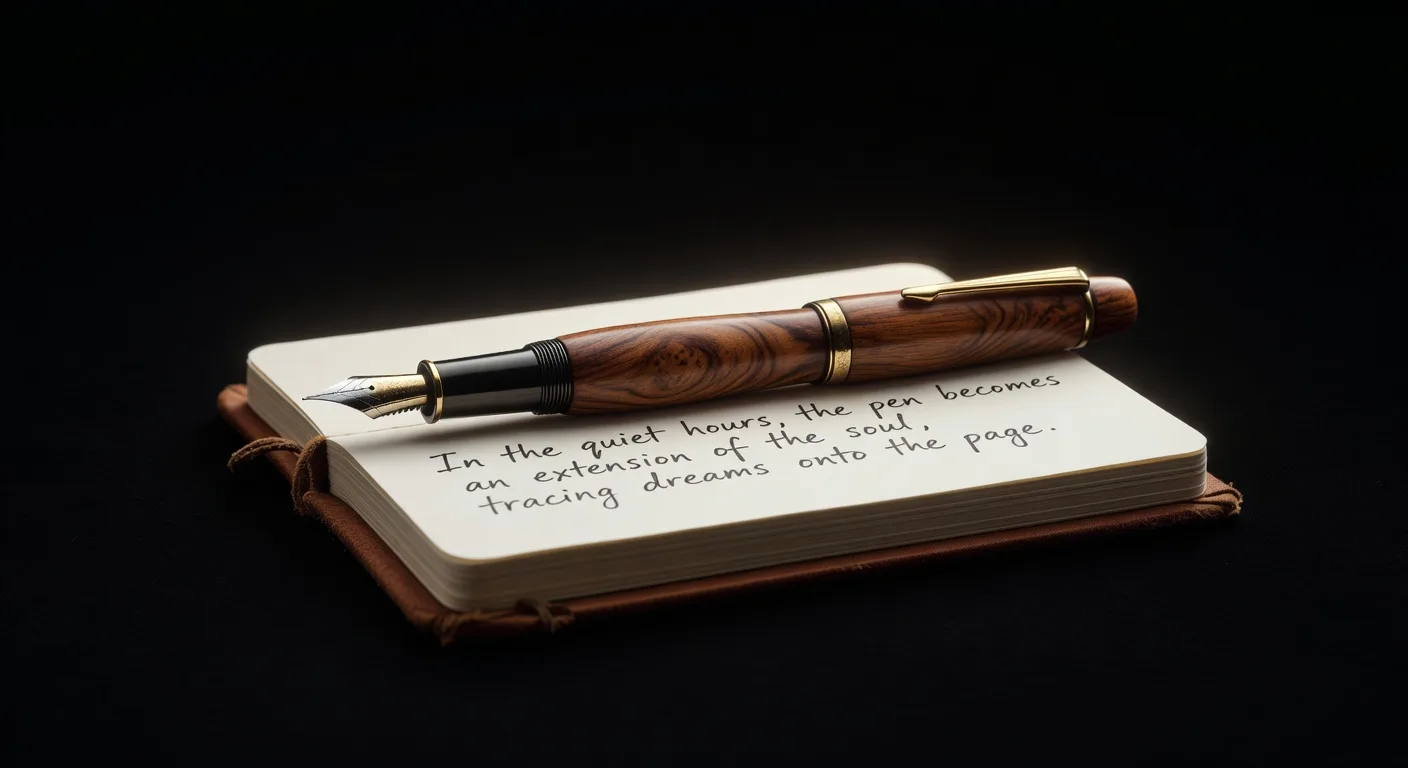 In the quiet hours, the pen becomes
an extension of the soul,
tracing dreams onto the page.